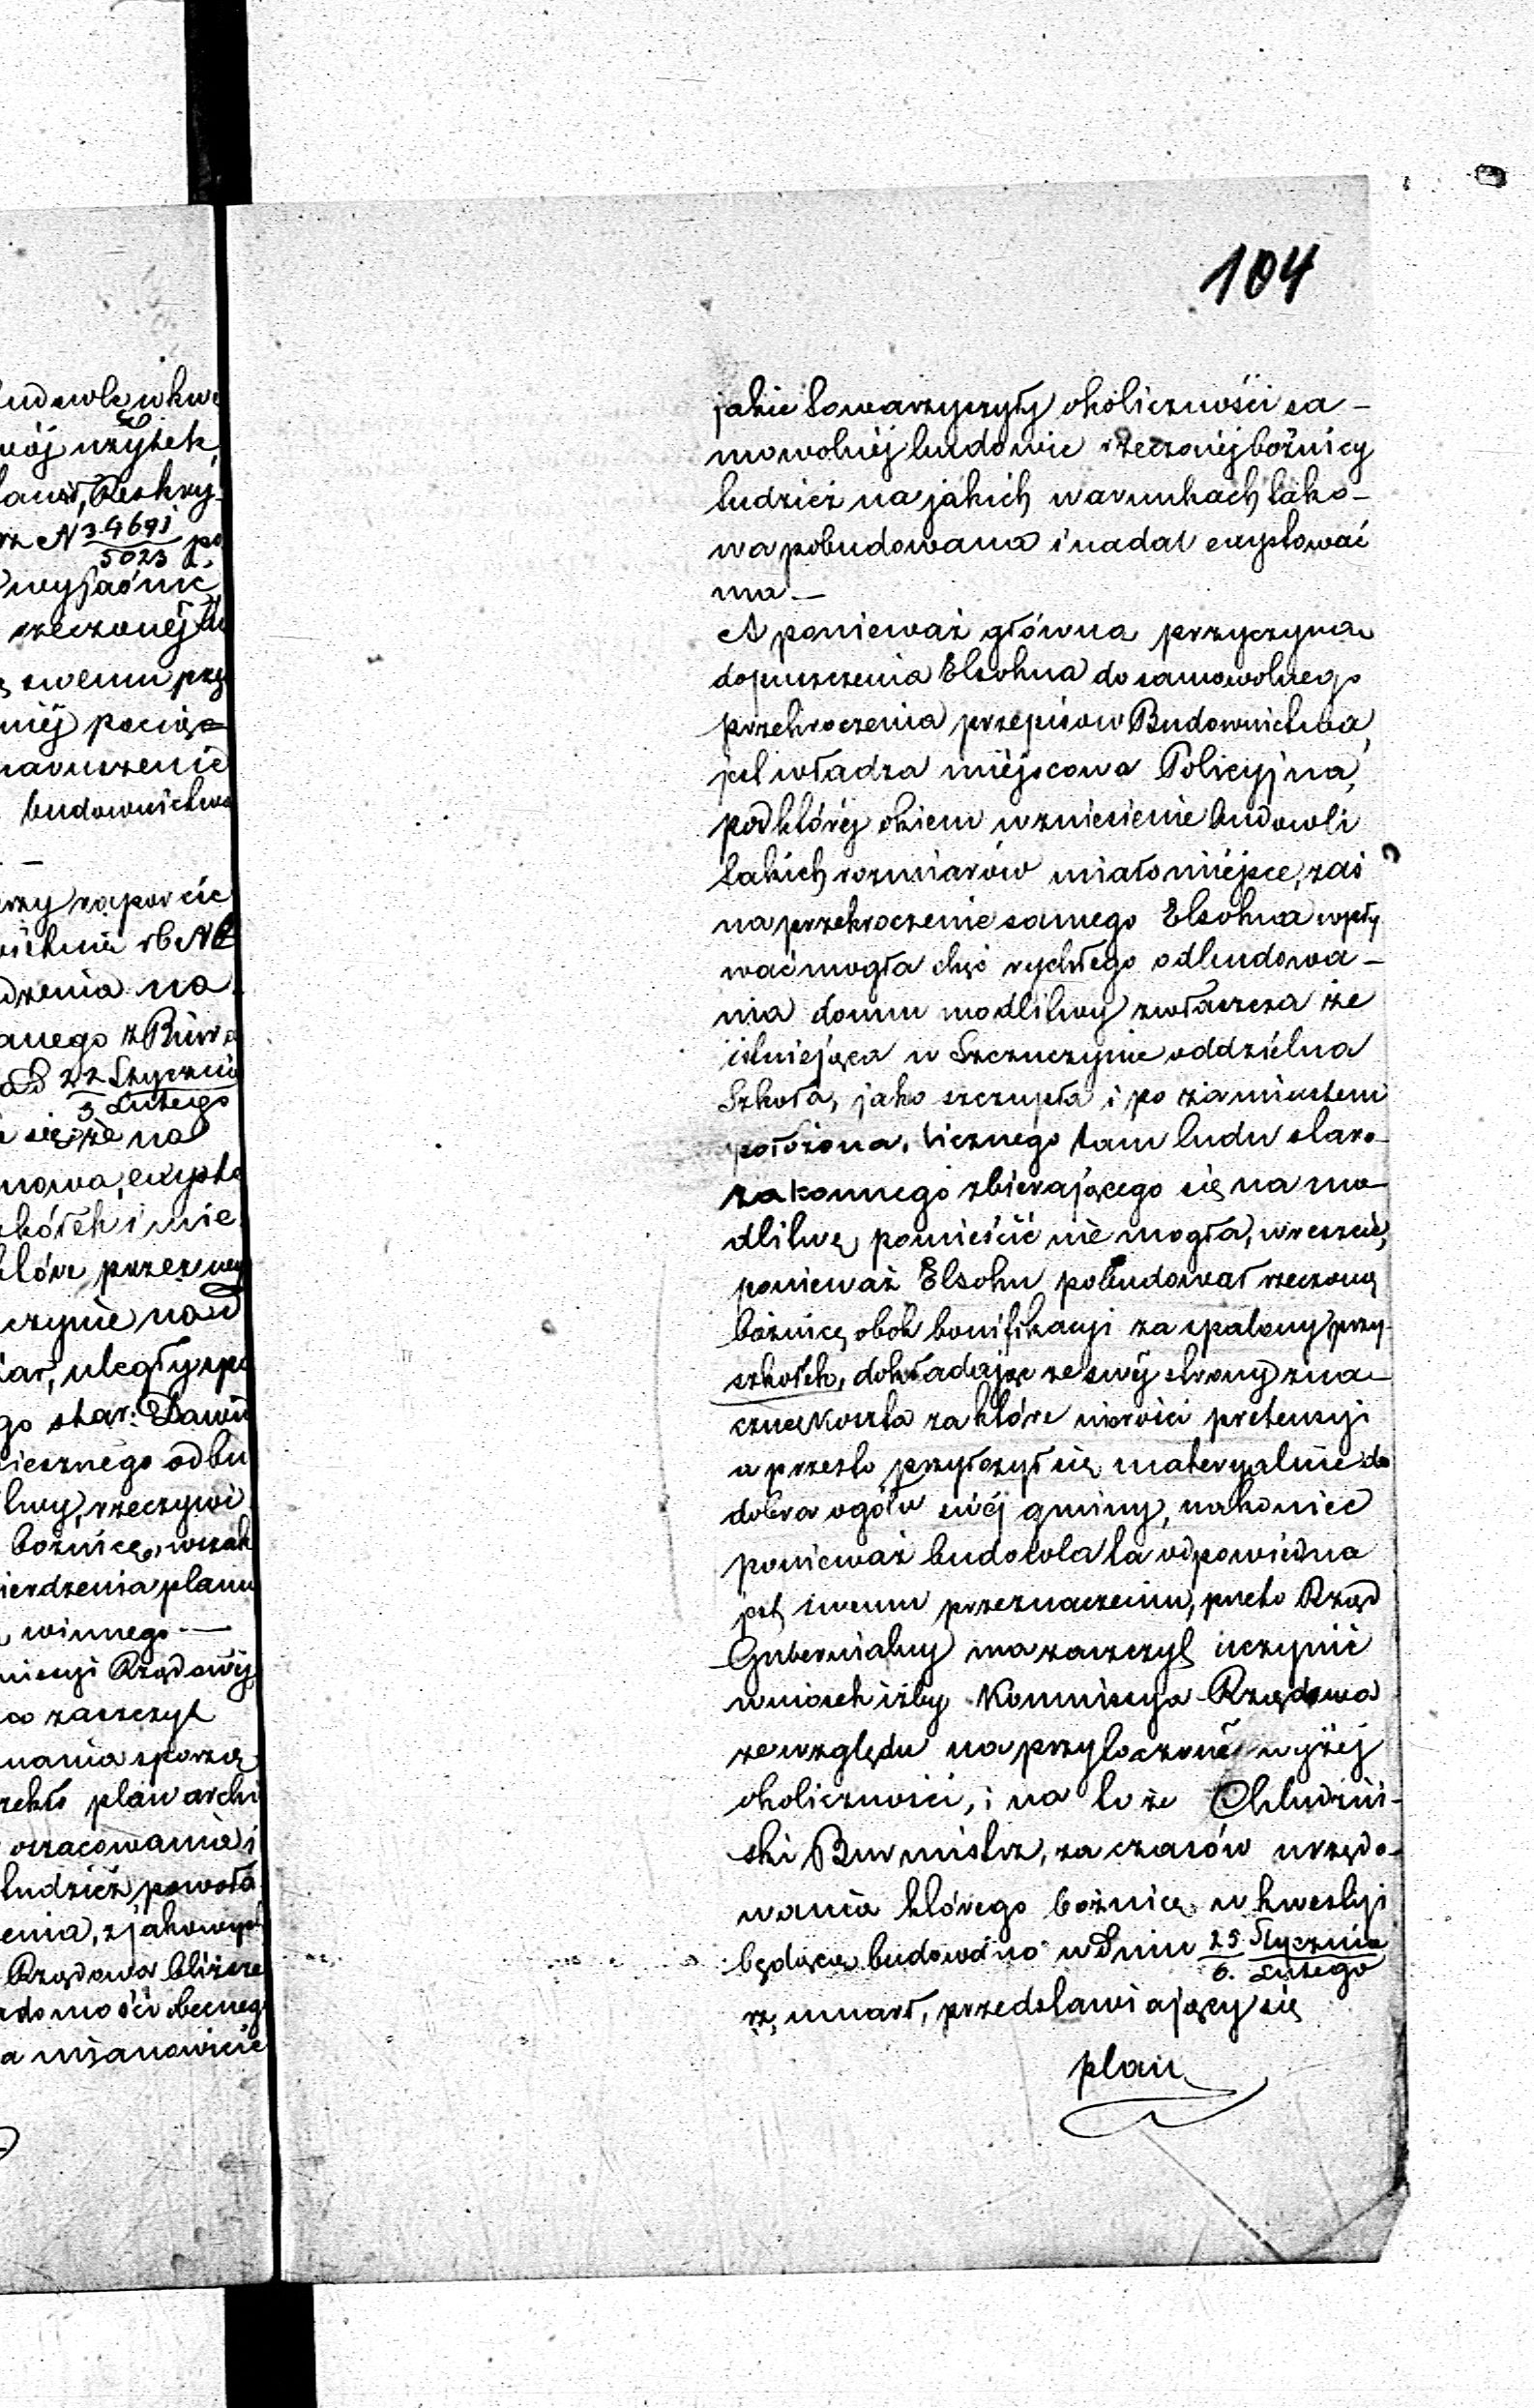 104
jakie towarzyszyły okoliczności sa-
mowolnéj budowie rzeczonéj bożnicy
tudzież na jakich warunkach tako-
wa pobudowana i nadal exystować
ma.—
A ponieważ główna przyczyna
dopuszczenia Elsohna do samowolnego
przekroczenia przepisów Budownictwa,
jest władza miéjscowa Policyjna,
pod któréj okiem wzniesienie budowli
takich rozmiarów miało miéjsce, zaś
na przekroczenie samego Elsohna wpły
wać mogła chęć rychłego odbudowa-
nia domu modlitwy zwłaszcza że
istniejąca w Szczuczynie oddzielna
Szkoła, jako szczupła i po za miastem
położona, licznego tam ludu staro-
zakonnego zbierającego się na mo-
dlitwę pomieścić nie mogła, wreszcie,
ponieważ Elsohn pobudował rzeczoną
bożnicę obok bonifikacyi za spalony przy-
szkołek, dokładając ze swéj strony zna-
czne koszta za które nierości pretensyi
a przeto przyłożył się materyalnie do
dobra ogółu swéj gminy, nakoniec
ponieważ budowla ta odpowiednia
jest swemu przeznaczeniu, przeto Rząd
Gubernialny ma zaszczyt uczynić
wniosek iżby Kommissya Rządowa
ze względu na przytoczone wyżéj
okoliczności, i na to że Chludziń-
ski Burmistrz, za czasów urzędo-
wania którego bożnicę w kwestyi
będącą budowano w dniu 25 Stycznia
6. Lutego
rz, umarł, przedstawiający się
plan
budowle w kwe
wój użytek,
Reskry-
rz N 34691
5023 po
wyjaśnić
rzeczonéj
swemu prze
niéj pocią
naruszenie
budownictwa
przy raporcie
dzenia na
anego z Biura
22 Stycznia
3 Lutego
się że na
nowa, exysto
kółek i nie
które przez
czynie nad
ar, uległy spa
go star: Dawid
iecznego odbu
twy, rzeczywi
bożnicę, wszak
ierdzenia planu
winnego.—
missyi Rządowéj
zaszczyt
nania sporzą
rekto plan archi
oszacowania i
tudzież powoła
enia, z jakowych
Rządowa bliższe
adomości obecneg
a mianowicie